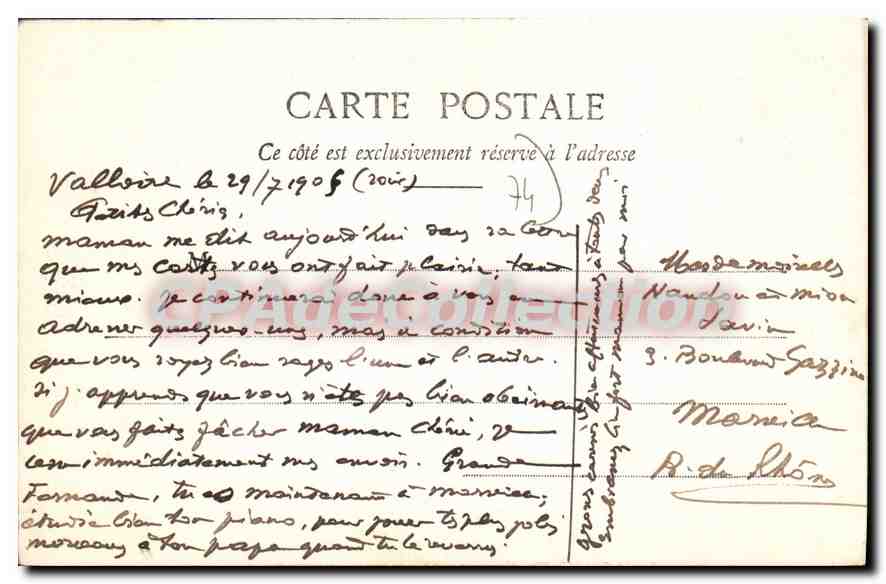 CARTE POSTALE
Ce côté est exclusivement réservé à l'adresse
74
Valloire le 29/7 1905 (soir)
Petits Chéris,
maman me dit aujourd'hui dans sa lettre
que mes cartes vous ont fait plaisir, tant
mieux. je continuerai donc à vous en
adresser quelques-unes, mais à condition
que vous soyez bien sages l'une et l'autre.
si j'apprends que vous n'êtes pas bien obeissantes
que vous faites fâcher maman chérie, je
cesse immédiatement mes envois. Grande
Fernande, tu es maintenant à Marseille;
étudie bien ton piano, pour jouer tes plus jolis
morceaux à ton papa quand tu le reverras.
grosses caresses bien affectueuses à toutes deux
embrassez bien fort maman pour moi
Mesdemoiselles
Nandou et
Savin
3. Boulevard Gazzino
Marseille
B. du Rhône
CPADeCollection